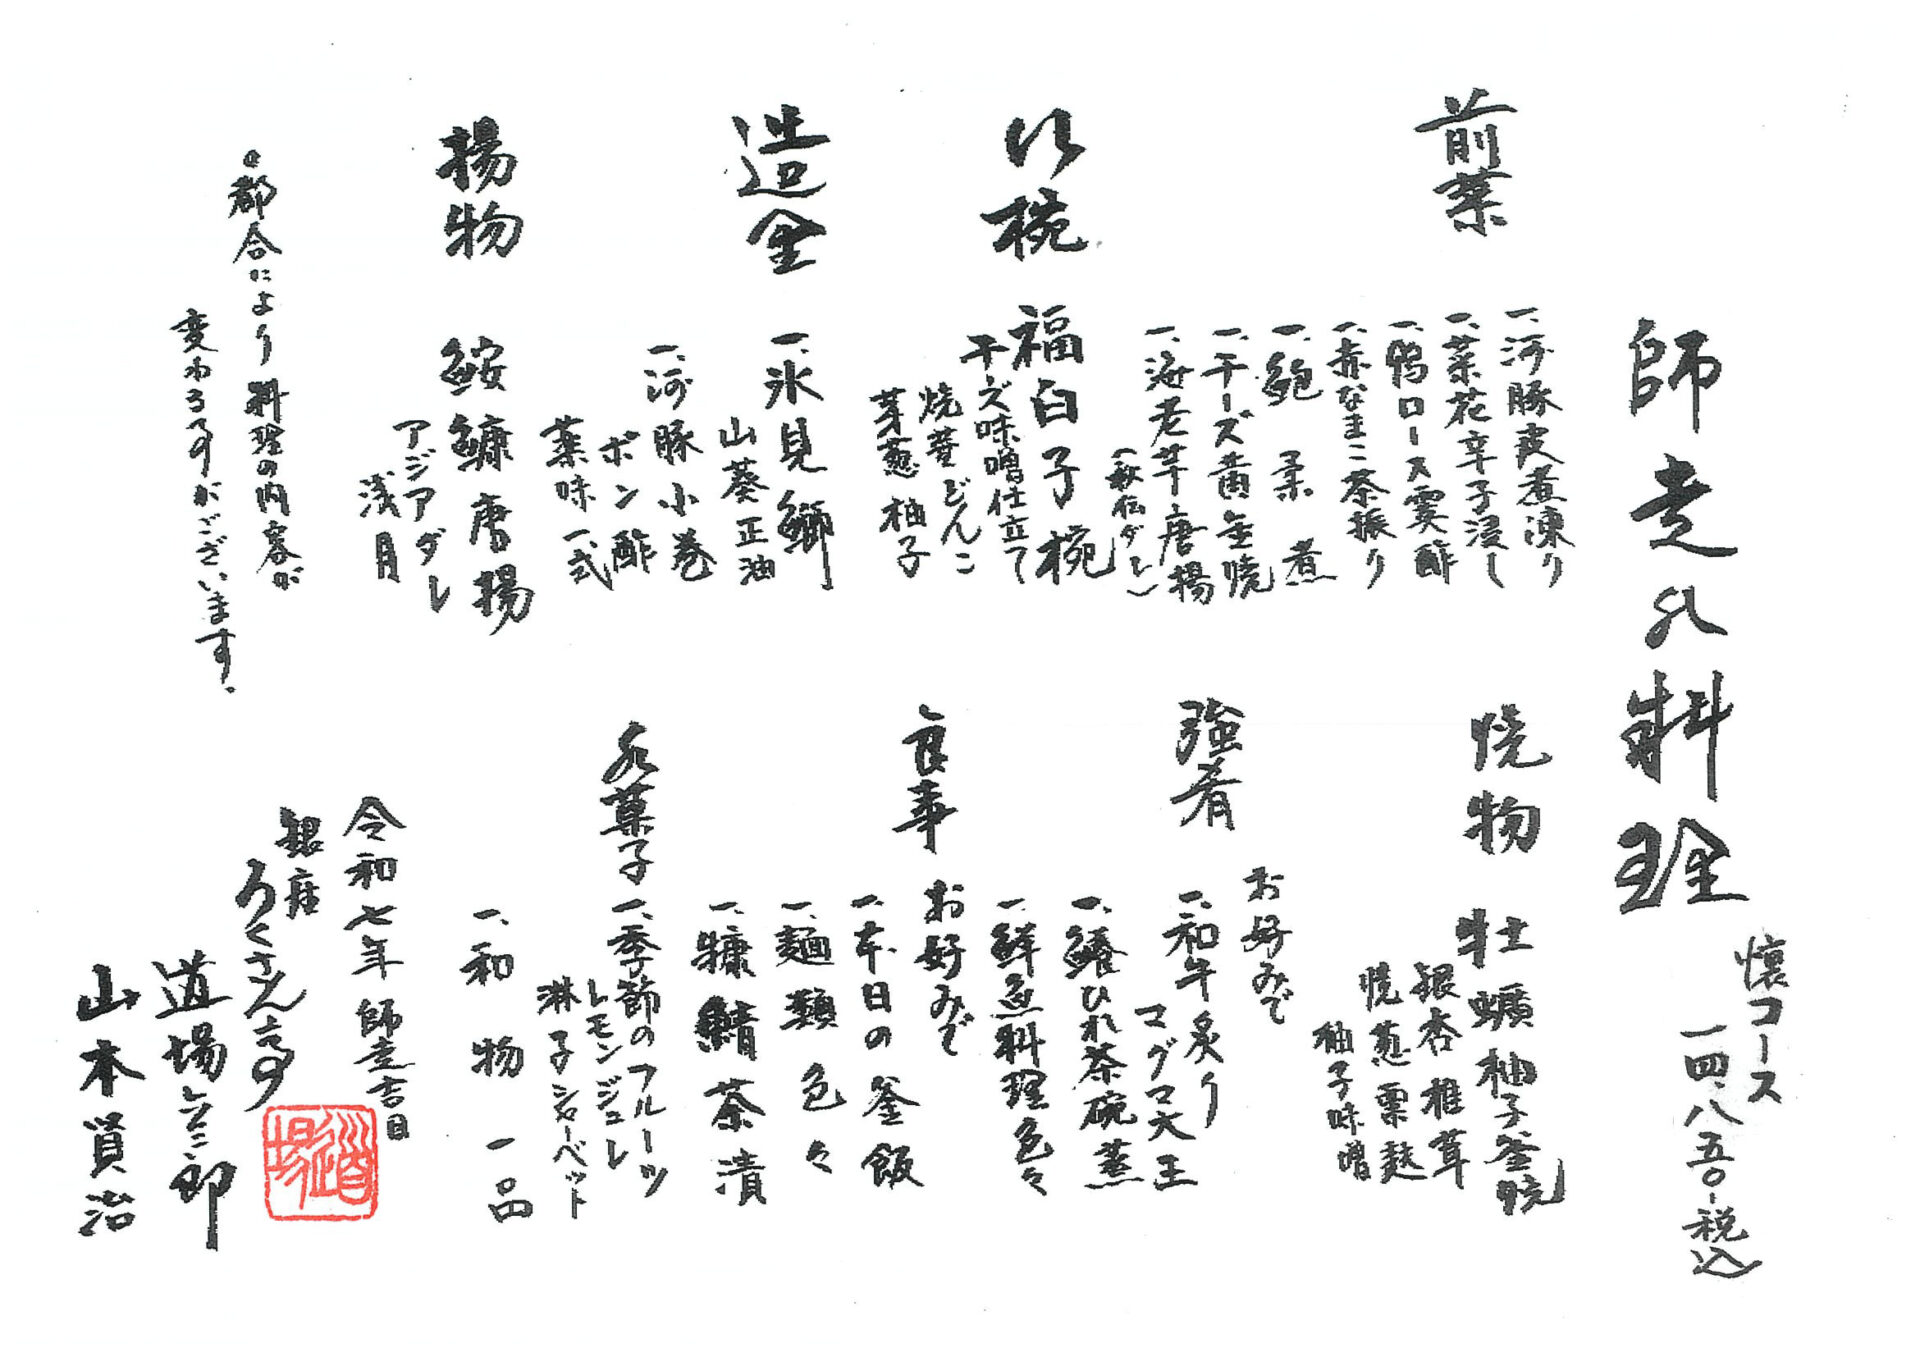 師走の料理
懐コース
一四、八五〇-税込
前菜
一、河豚皮煮凍り
一、菜花辛子浸し
一、鴨ロース霙酢
一、赤なまこ茶振り
一、鮑柔煮
一、チーズ黄金焼
一、海老芋唐揚
椀
福白子椀
チーズ味噌仕立て
焼蕪どんこ
芽葱柚子
造里
一、氷見鰤
山葵正油
一、河豚小巻
ポン酢
薬味一式
揚物
鮟鱇唐揚
アジアダレ
浅月
・都合により料理の内容が
変わる事がございます。
焼物
牡蠣柚子釜焼
銀杏椎茸
焼葱粟麩
柚子味噌
強肴
お好みで
一、和牛炙り
マグマ大王
一、鱶ひれ茶碗蒸
一、鮮魚料理色々
食事
お好みで
一、本日の釜飯
一、麺類色々
一、糠鯖茶漬
水菓子
一、季節のフルーツ
レモンジュレ
淋子シャーベット
一、和物一品
令和七年師走吉日
銀座
ろくさん亭
道場六三郎
山本賢治
道場